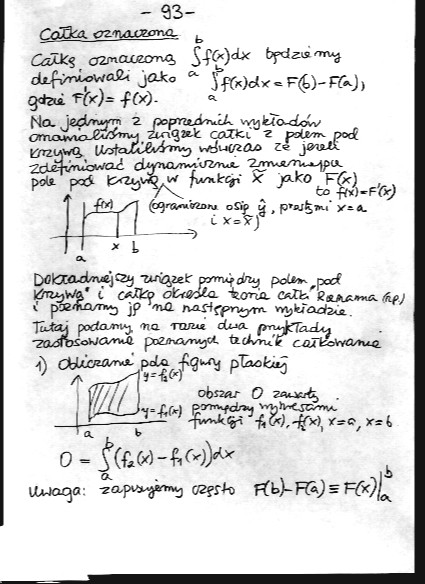 - 93 -
Całka oznaczona
Całkę oznaczoną ∫_a^b f(x)dx będziemy
definiowali jako ∫_a^b f(x)dx = F(b) - F(a),
gdzie F'(x) = f(x).
Na jednym z poprzednich wykładów
omawialiśmy związek całki z polem pod
krzywą. Ustaliliśmy wówczas że jeżeli
zdefiniować dynamicznie zmieniające
pole pod krzywą w funkcji x̃ jako F(x)
to f(x)=F'(x)
f(x)
(ograniczone osią ŷ, prostymi x=a
i x=x̃)
a x b
Dokładniejszy związek pomiędzy polem "pod
krzywą" i całką określa teoria całki Riemanna (np.)
i poznamy ją na następnym wykładzie.
Tutaj podamy na razie dwa przykłady
zastosowania poznanych technik całkowania
1) Obliczanie pola figury płaskiej
y=f₂(x)
y=f₁(x)
a b
obszar O zawarty
pomiędzy wykresami
funkcji f₁(x), f₂(x), x=a, x=b
O = ∫_a^b (f₂(x) - f₁(x))dx
Uwaga: zapisujemy często F(b)-F(a) ≡ F(x)|_a^b